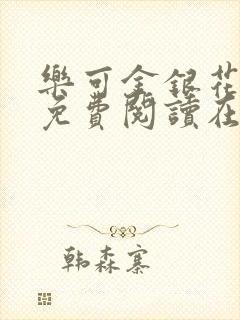 樂可金銀花
免費閱讀在
韩森寨